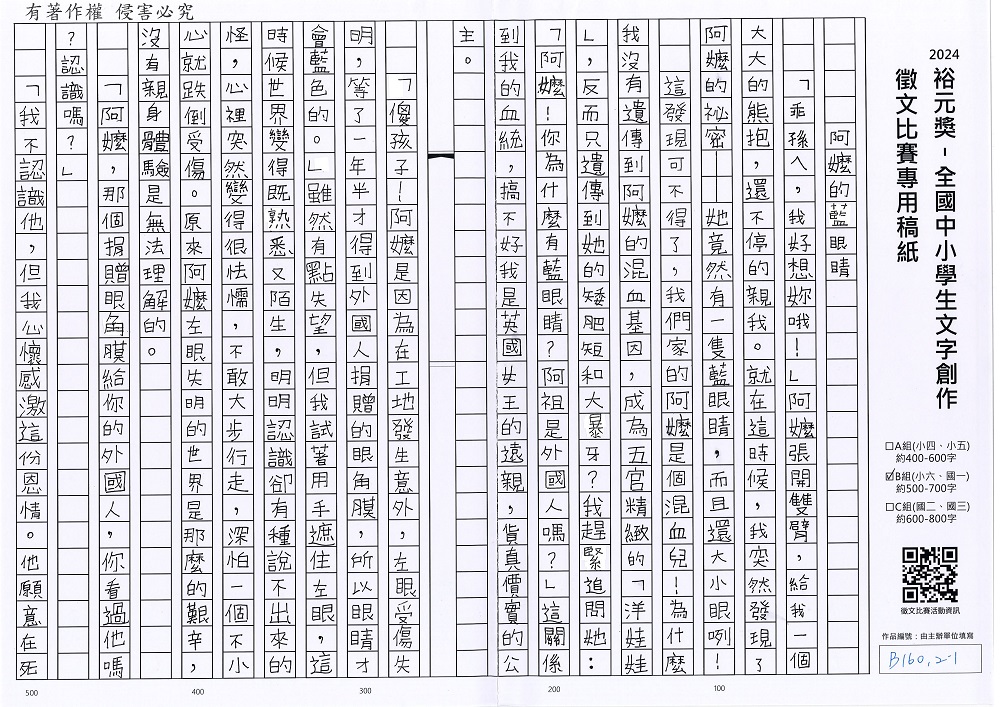 有著作權 侵害必究
2024
裕元獎-全國中小學生文字創作
徵文比賽專用稿紙
□A組(小四、小五)
約400-600字
☑B組(小六、國一)
約500-700字
□C組(國二、國三)
約600-800字
徵文比賽活動資訊
作品編號:由主辦單位填寫
B160,2-1
阿嬤的藍眼睛
「乖孫ㄟ,我好想妳哦!」阿嬤張開雙臂,給我一個
大大的熊抱,還不停的親我。就在這時候,我突然發現了
阿嬤的祕密——她竟然有一隻藍眼睛,而且還大小眼咧!
這發現可不得了,我們家的阿嬤是個混血兒!為什麼
我沒有遺傳到阿嬤的混血基因,成為五官精緻的「洋娃娃
」,反而只遺傳到她的矮肥短和大暴牙?我趕緊追問她:
「阿嬤!你為什麼有藍眼睛?阿祖是外國人嗎?」這關係
到我的血統,搞不好我是英國女王的遠親,貨真價實的公
主。
「傻孩子!阿嬤是因為在工地發生意外,左眼受傷失
明,等了一年半才得到外國人捐贈的眼角膜,所以眼睛才
會藍色的。」雖然有點失望,但我試著用手遮住左眼,這
時候世界變得既熟悉又陌生,明明認識卻有種說不出來的
怪,心裡突然變得很怯懦,不敢大步行走,深怕一個不小
心就跌倒受傷。原來阿嬤左眼失明的世界是那麼的艱辛,
沒有親身體驗是無法理解的。
「阿嬤,那個捐贈眼角膜給你的外國人,你看過他嗎
?認識嗎?」
「我不認識他,但我心懷感激這份恩情。他願意在死
100
200
300
400
500